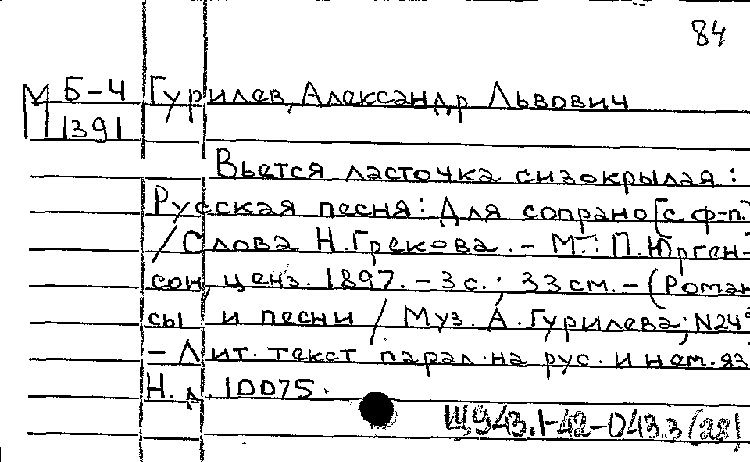 84
М Б-4 Гурилев, Александр Львович
1391
Вьется ласточка сизокрылая:
Русская песня: Для сопрано [с ф-п.]
/ Слова Н. Грекова. - М.: П. Юрген-
сон, ценз. 1897. - 3 с.; 33 см. - (Роман-
сы и песни / Муз. А. Гурилева; N24
- Лит. текст парал. на рус. и нем. яз.
Н. д. 10075.
Щ943.1-42-043.3 (28)